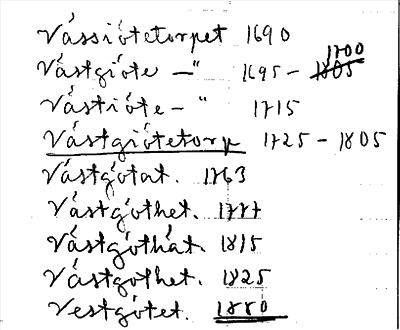 Vássiótetorpet 1690
Vástgióte — " 1695 - 1805 1700
Vástióte - " 1715
Vástgiótetorp 1725 - 1805
Vástgótat. 1763
Vástgóthet. 1777
Vástgóthát. 1815
Vástgothet. 1825
Vestgótet. 1880